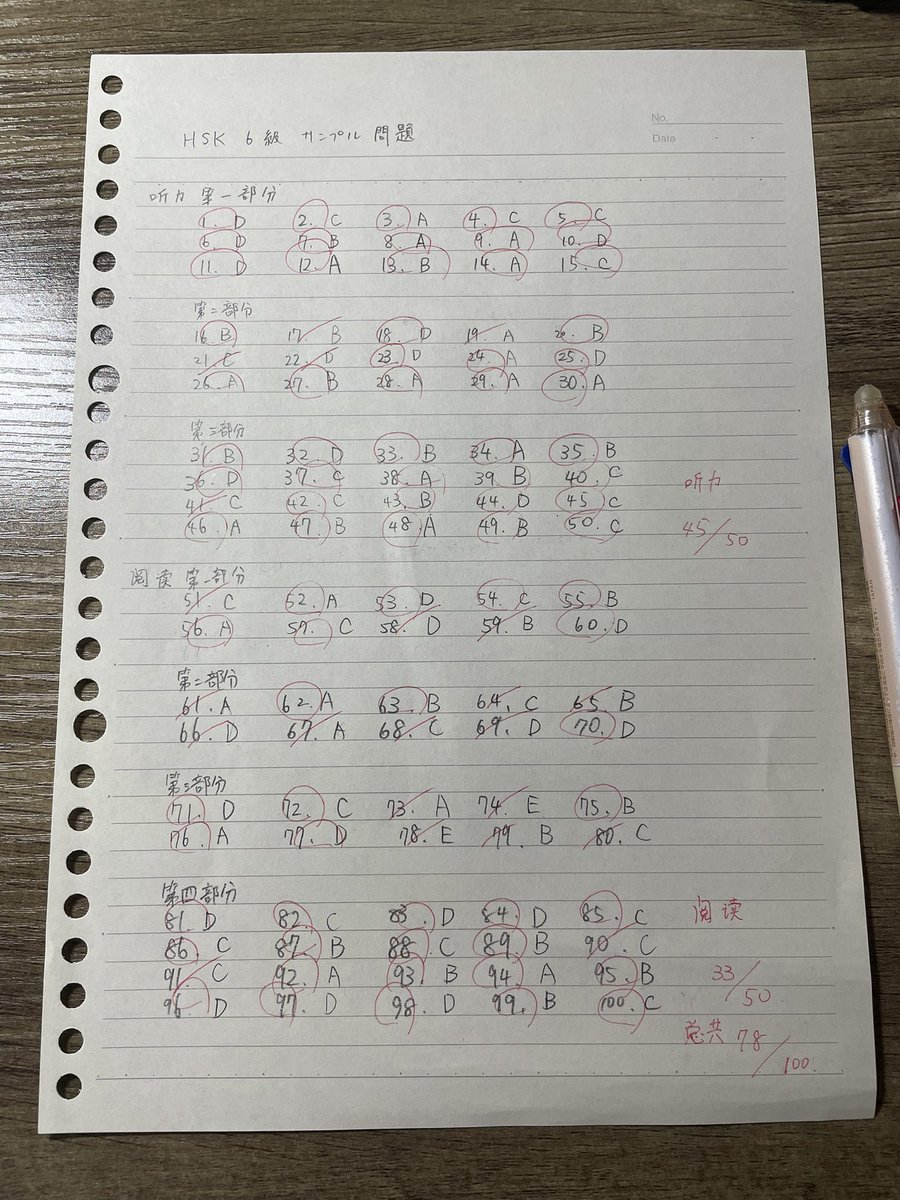 No.
Date
HSK 6級 サンプル問題
听力 第一部分
1. D 2. C 3. A 4. C 5. C
6. D 7. B 8. A 9. A 10. D
11. D 12. A 13. B 14. A 15. C
第二部分
16. B 17. B 18. D 19. A 20. B
21. C 22. D 23. D 24. A 25. D
26. A 27. B 28. A 29. A 30. A
第三部分
31. B 32. D 33. B 34. A 35. B
36. D 37. C 38. A 39. B 40. C
听力
41. C 42. C 43. B 44. D 45. C
46. A 47. B 48. A 49. B 50. C
45/50
阅读 第一部分
51. C 52. A 53. D 54. C 55. B
56. A 57. C 58. D 59. B 60. D
第二部分
61. A 62. A 63. B 64. C 65. B
66. D 67. A 68. C 69. D 70. D
第三部分
71. D 72. C 73. A 74. E 75. B
76. A 77. D 78. E 79. B 80. C
第四部分
81. D 82. C 83. D 84. D 85. C
阅读
86. C 87. B 88. C 89. B 90. C
91. C 92. A 93. B 94. A 95. B
33/50
96. D 97. D 98. D 99. B 100. C
总共 78/100.